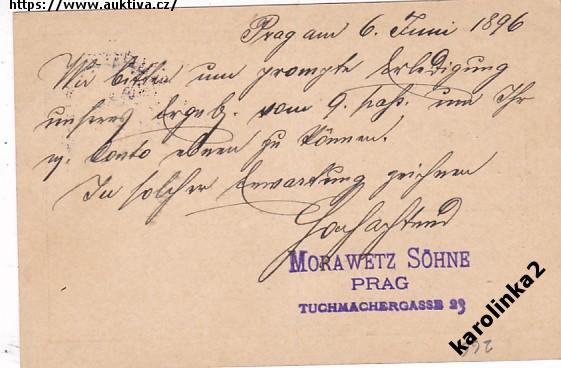 https://www.auktiva.cz/
Prag am 6. Juni 1896
Wir bitten um prompte Erledigung
unseres Ergeb. vom 9. pass. um Ihr
w. Conto ebnen zu können.
In solcher Erwartung zeichnen
Hochachtend
MORAWETZ SÖHNE
PRAG
TUCHMACHERGASSE 23
karolinka2